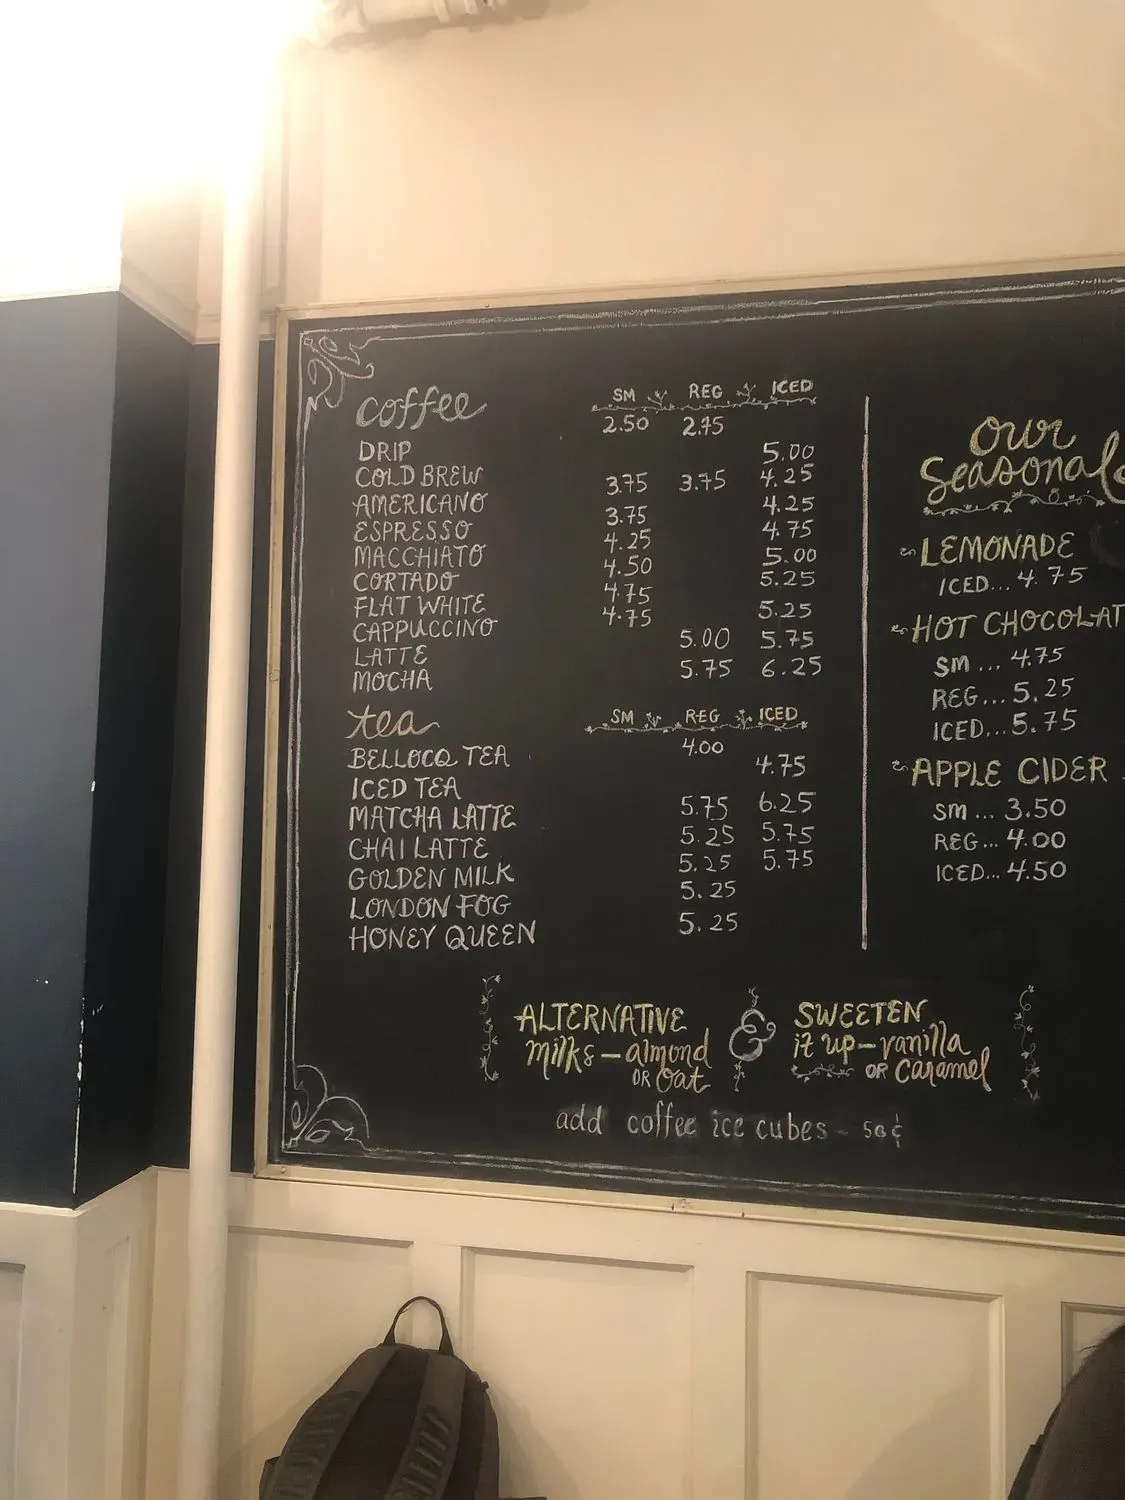 coffee SM REG ICED
2.50 2.75
DRIP 5.00
COLD BREW 3.75 3.75 4.25
AMERICANO 3.75 4.25
ESPRESSO 4.25 4.75
MACCHIATO 4.50 5.00
CORTADO 4.75 5.25
FLAT WHITE 4.75 5.25
CAPPUCCINO 5.00 5.75
LATTE 5.75 6.25
MOCHA
tea SM REG ICED
4.00
BELLOCQ TEA 4.75
ICED TEA
MATCHA LATTE 5.75 6.25
CHAI LATTE 5.25 5.75
GOLDEN MILK 5.25 5.75
LONDON FOG 5.25
HONEY QUEEN 5.25
our
seasonal
LEMONADE
ICED... 4.75
HOT CHOCOLAT
SM ... 4.75
REG... 5.25
ICED... 5.75
APPLE CIDER
SM ... 3.50
REG... 4.00
ICED... 4.50
ALTERNATIVE
milks - almond
OR oat
&
SWEETEN
it up - vanilla
OR caramel
add coffee ice cubes - 50¢